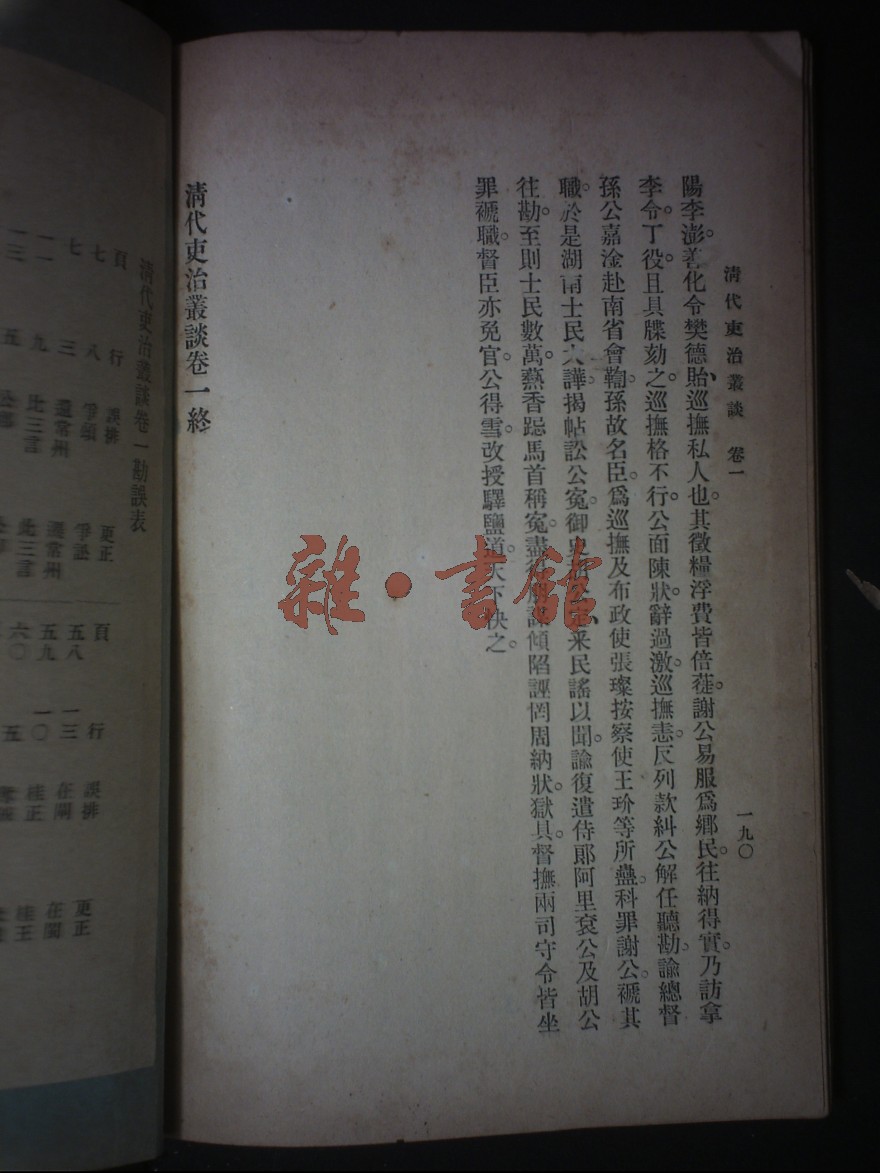 清代吏治叢談 卷一
一九〇
陽李澎。善化令樊德貽、巡撫私人也。其徵糧浮費皆倍蓰。謝公易服爲鄉民。往納得實。乃訪拿
李令。丁役。且具牒劾之。巡撫格不行。公面陳狀。辭過激。巡撫恚。反列款糾公。解任聽勘。諭總督
孫公嘉淦赴南省會鞫。孫故名臣。爲巡撫及布政使張璨按察使王玠等所蠱。科罪謝公。褫其
職。於是湖南士民大譁。揭帖訟公冤。御史采民謠以聞。諭復遣侍郞阿里袞公及胡公
往勘。至則士民數萬。爇香跽馬首稱冤。盡得傾陷誣罔周納狀。獄具。督撫兩司守令皆坐
罪褫職。督臣亦免官。公得雪。改授驛鹽道。天下快之。
清代吏治叢談卷一終
雜·書館
清代吏治叢談卷一勘誤表
頁 行 誤排 更正
七 八 爭頌 爭訟
七 三 還常州 還常州
一一 九 比三言 此三言
一三 五
頁 行 誤排 更正
五八 一三 在閘 在闈
五九 一〇 桂正 桂王
六〇 五